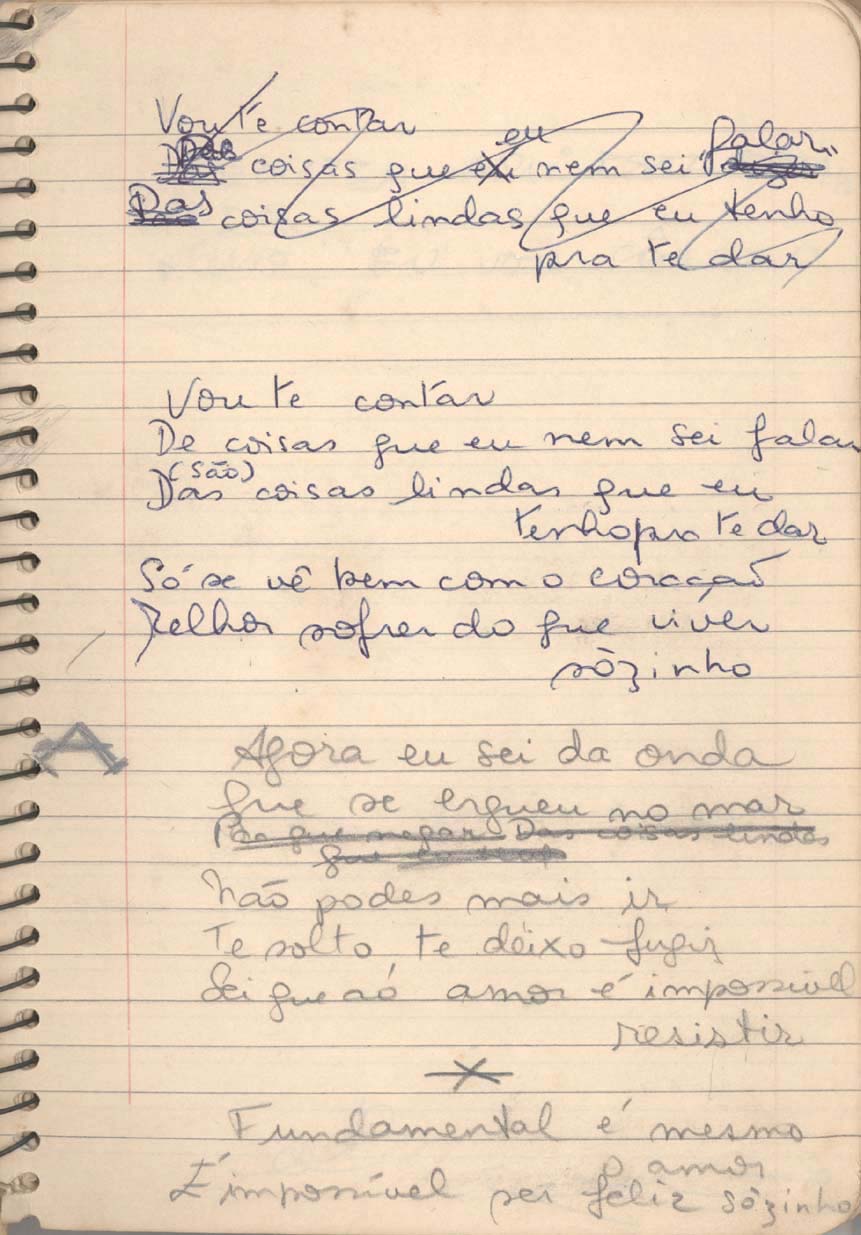 Vou te contar
Das coisas que eu nem sei falar
Das coisas lindas que eu tenho
pra te dar
Vou te contar
De coisas que eu nem sei falar
(são)
Das coisas lindas que eu
tenho pra te dar
Só se vê bem com o coração
Melhor sofrer do que viver
sòzinho
A
Agora eu sei da onda
que se ergueu no mar
Pra que negar Das coisas lindas
que eu
Não podes mais ir
Te solto te deixo fugir
Sei que aó amor é impossível
resistir
Fundamental é mesmo
o amor
É impossível ser feliz sòzinho